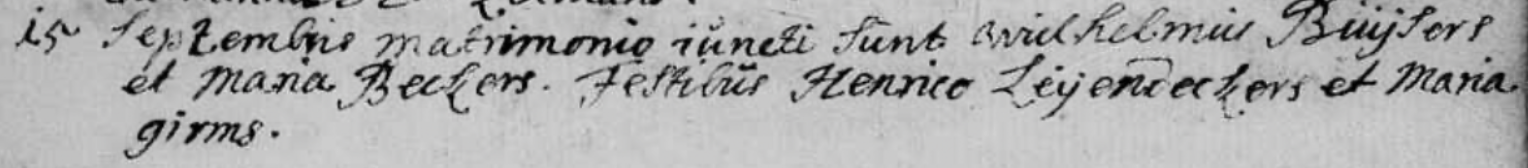 15 Septembris matrimonio iuncti sunt Wilhelmus Büÿsers
et Maria Beckers. Testibus Henrico Leÿendeckers et Maria
girms.